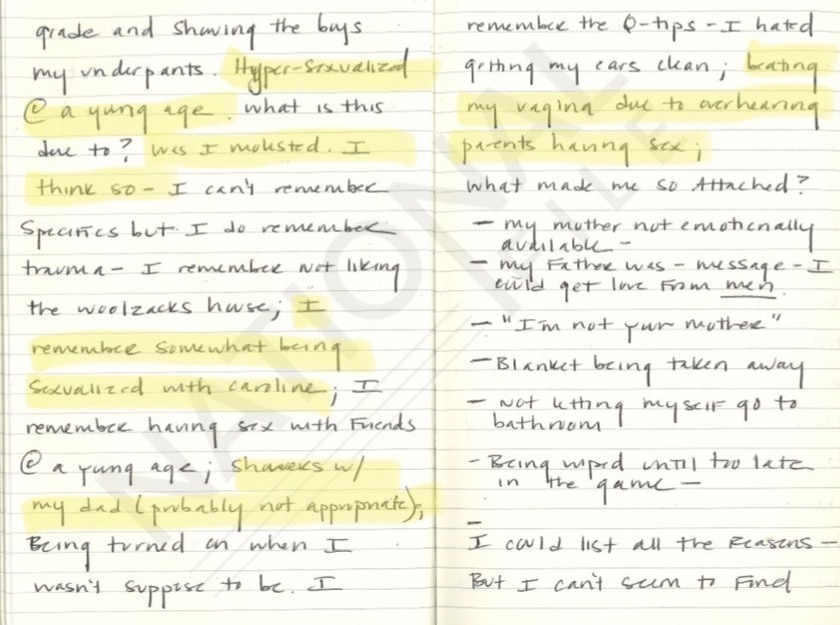 grade and showing the boys
my underpants. Hyper-sexualized
@ a yung age. what is this
due to? Was I molested. I
think so - I can't remember
Specifics but I do remember
trauma - I remember not liking
the woolzacks house; I
remember somewhat being
sexualized with caroline; I
remember having sex with Friends
@ a yung age; showers w/
my dad (probably not appropriate);
Being turned on when I
wasn't suppose to be. I
remember the Q-tips - I hated
getting my ears clean; beating
my vagina due to overhearing
parents having sex;
What made me so Attached?
- my mother not emotionally
available -
- my Father was - message - I
could get love from men.
- "I'm not your mother"
- Blanket being taken away
- Not letting myself go to
bathroom
- Being wiped until too late
in the game -
-
I could list all the Reasons -
But I can't seem to Find
NATIONAL
FILE